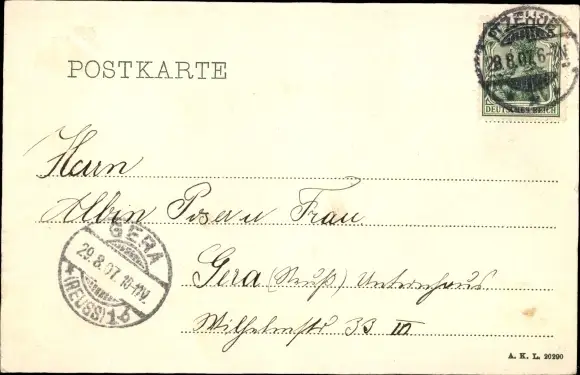 POSTKARTE
28.8.07. 6-7N.
DEUTSCHES REICH
Herrn
Albin Poser u Frau
GERA
29.8.07. 10-11V.
* (REUSS) 1b
Gera (Reuß) Untermhaus
Wilhelmstr 33 III
A. K. L. 20290